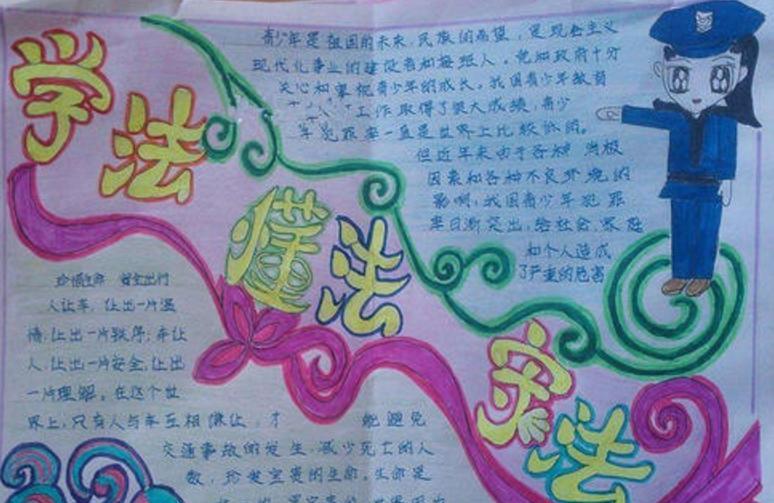 学法
懂法
守法
青少年是祖国的未来,民族的希望,是现代主义
现代化事业的建设者和接班人。党和政府十分
关心和重视青少年的成长。我国青少年教育
工作取得了很大成绩,青少
年犯罪率一直是世界上比较低的。
但近年来由于各种 消极
因素和各种不良环境的
影响,我国青少年犯罪
率日渐突出,给社会、家庭
和个人造成
了严重的危害
珍惜生命 安全出行
人让车,让出一片温
情;让出一片秩序;车让
人,让出一片安全;让出
一片理解。在这个世
界上,只有人与车互相谦让,才 能避免
交通事故的发生,减少死亡的人
数,珍爱宝贵的生命。生命是